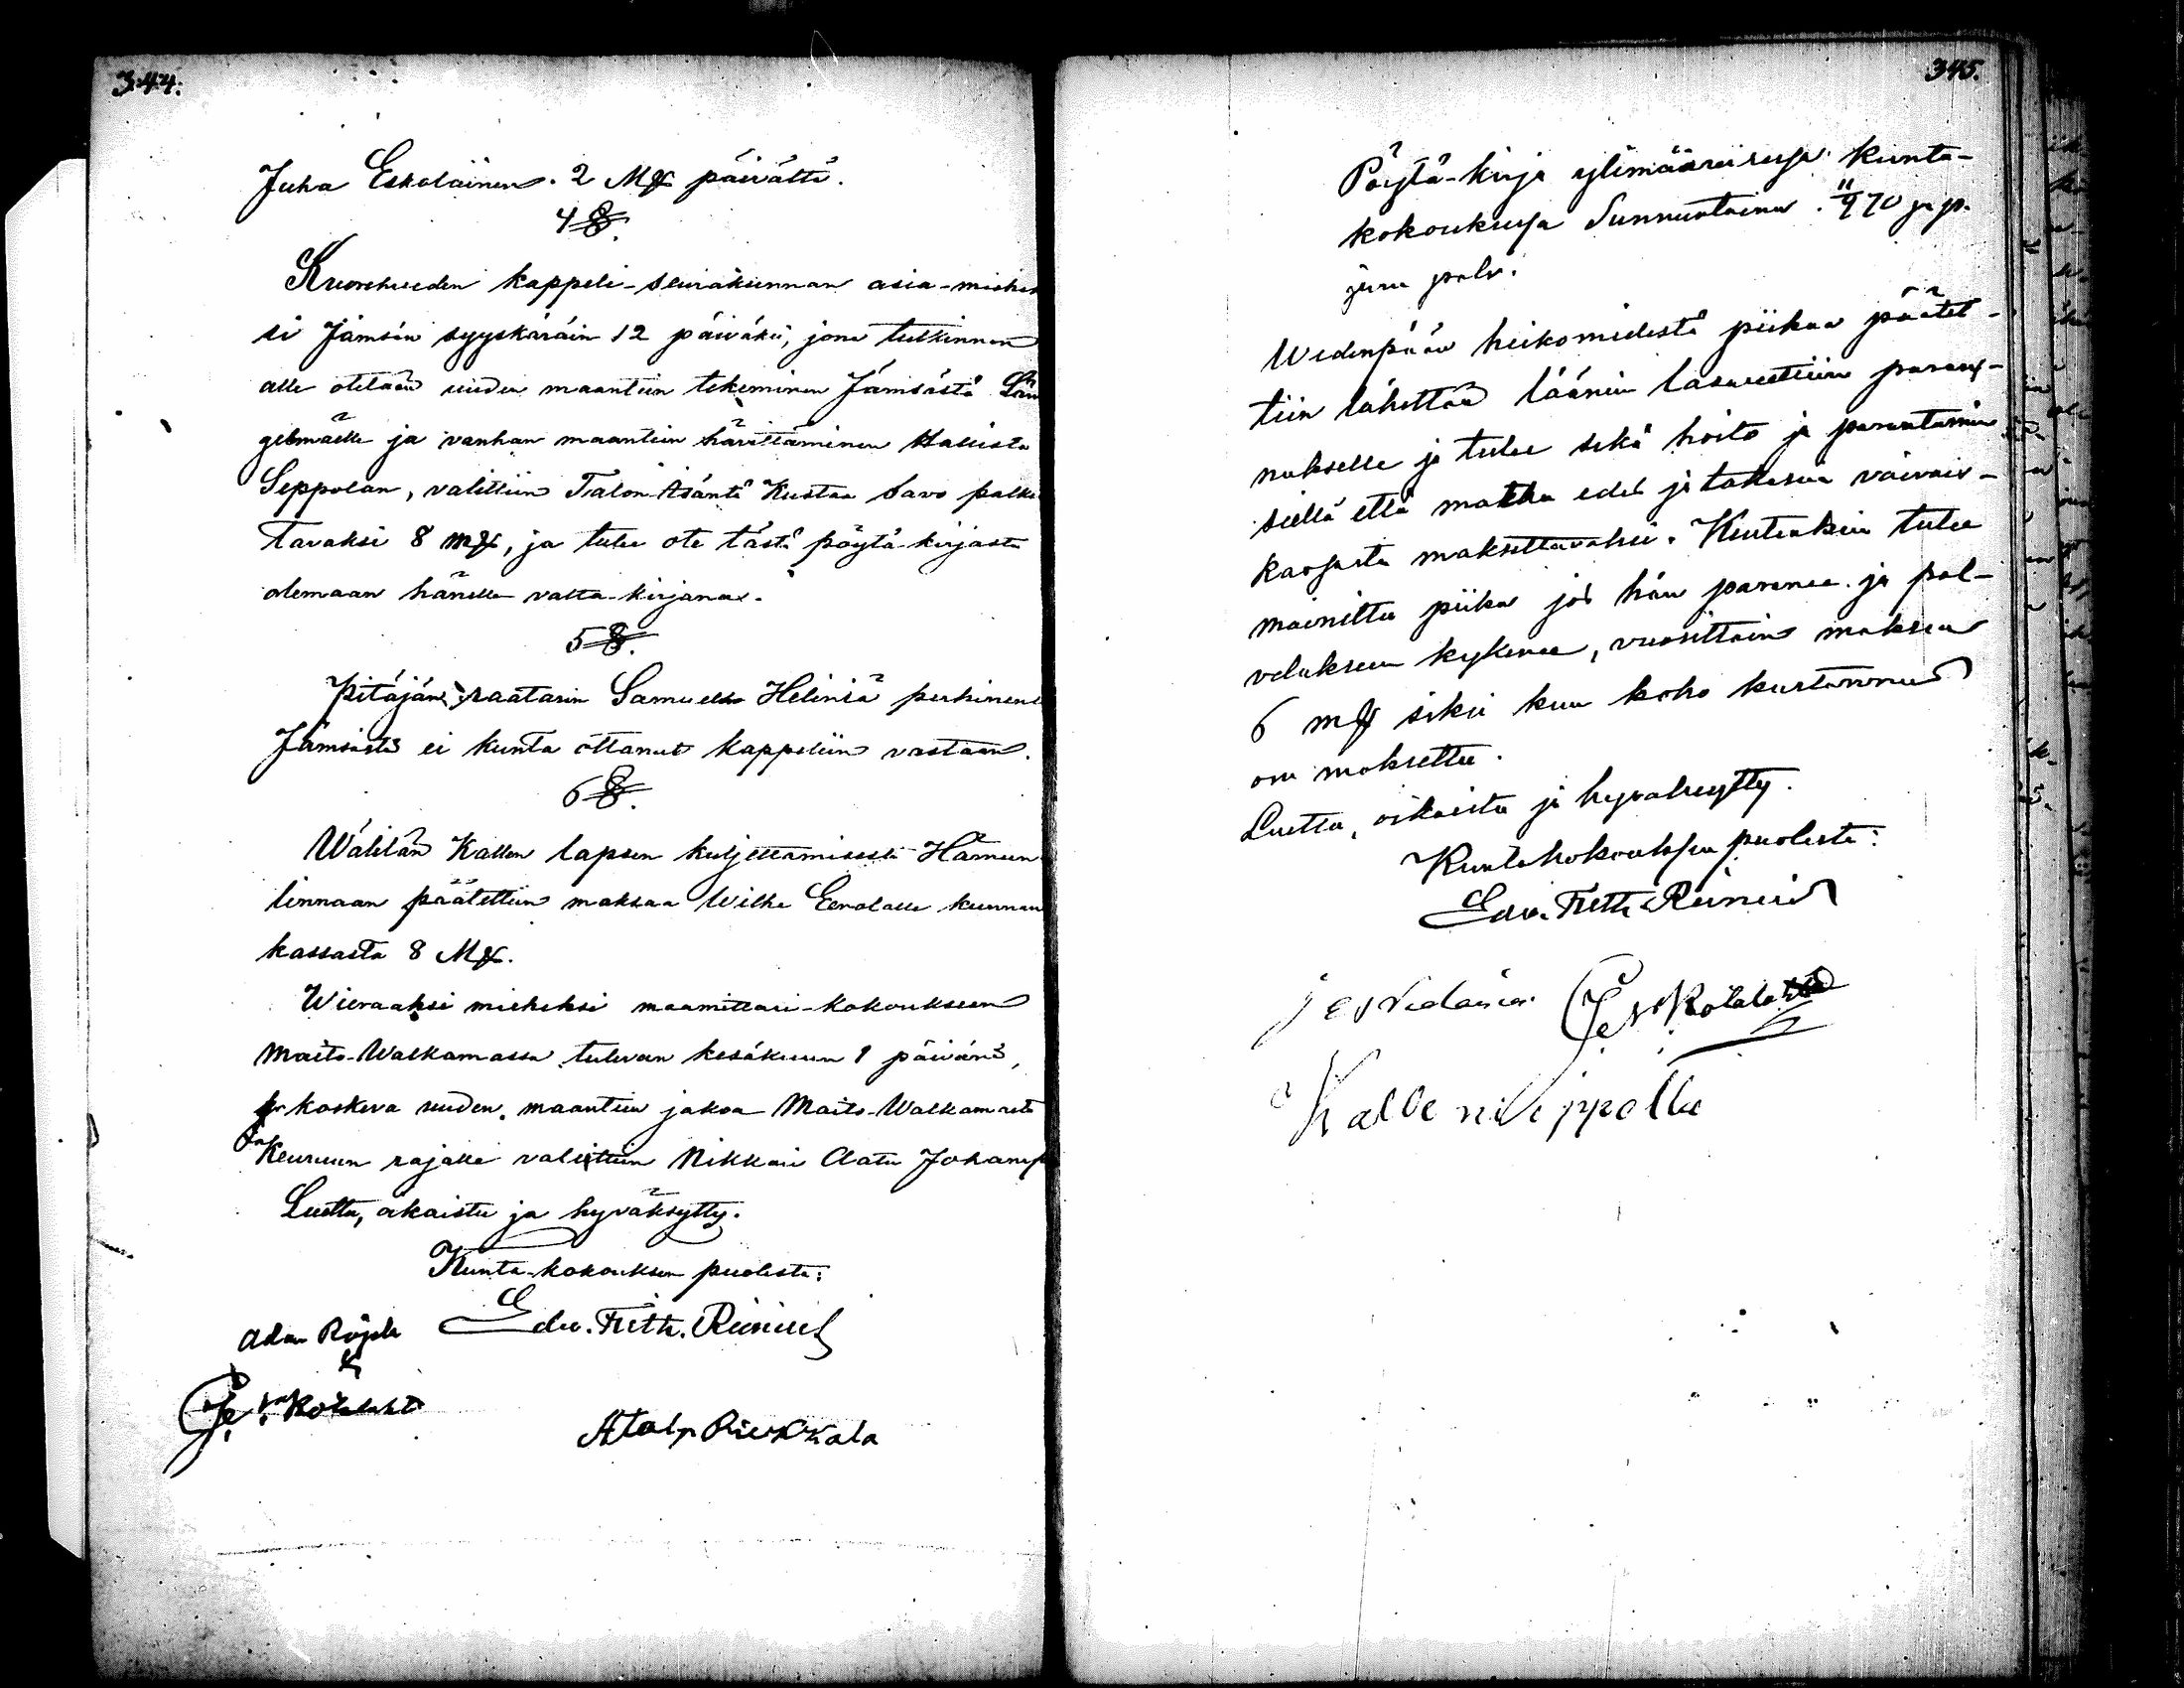 344.
Juha Eskoläinen. 2 Mk päivältä.
4 §.
Kuoreheeden kappeli-seurakunnan asia-miehek
si Jämsän syyskäräin 12 päiväksi, jona tutkinnon
alle otetaan uuden maantien tekeminen Jämsästä Län
gelmäelle ja vanhan maantien hävittäminen Hallista
Seppolan, valittiin Talon-Isäntä Kustaa Savo palkit
tavaksi 8 mk, ja tulee ote tästä pöytä-kirjasta
olemaan hänelle valta-kirjana.
5 §.
Pitäjän raatarin Samuel Heliniä perhinens
Jämsästä ei kunta ottanut kappeliin vastaan.
6 §.
Wälilän Kallen lapsen kuljettamisesta Hämeen
linnaan päätettiin maksaa Wilhe Eerolalle kunnan
kassasta 8 Mk.
Wieraaksi mieheksi maamittari-kokoukseen
Maito-Walkamassa tulevan kesäkuun 1 päivänä,
koskeva uuden maantien jakoa Maito-Walkamasta
Keuruun rajalle valittiin Nikkari Aatu Johanss
Luettu, oikaistu ja hyväksytty.
Kunta-kokouksen puolesta:
Edv. Freth. Reinius
345.
Pöytä-kirja ylimääräisessä kunta-
kokouksessa Sunnuntaina 11/9 70 ja p.
juma palv.
Wedenpään heikomielestä piikaa päätet-
tiin lähettää läänin lasarettiin paran-
nukselle ja tulee sekä hoito ja parantamin
siellä että matka edes ja takasin vaivais-
kassasta maksettavaksi. Kuitenkin tulee
mainittu piika jos hän paranee ja pal-
velukseen kykenee, vuosittain maksaa
6 mk siksi kun koko kustannus
on maksettu.
Luettu, oikaistu ja hyväksytty.
Kuntakokouksen puolesta:
Edv. Freth. Reinius
Kalle Seppälle